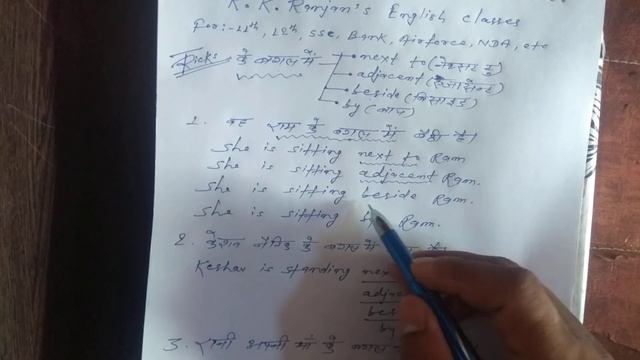 K. K. Ranjan's English classes
For:- 11th, 12th, SSC, Bank, Airforce, NDA, etc
Tricks के बगल में next to (नेक्सट टु)
adjacent (एडजासेन्ट)
beside (बिसाइड)
by (बाय)
1. वह राम के बगल में बैठी है।
She is sitting next to Ram
She is sitting adjacent Ram.
She is sitting beside Ram.
She is sitting by Ram.
2. केशव के बगल में
Keshav is standing nex
adja
bes
by
3. रानी अपनी माँ के बगल